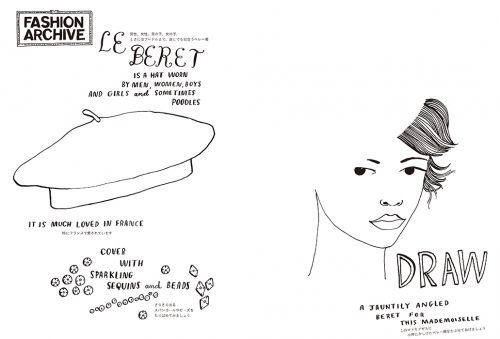 FASHION
ARCHIVE
LE
BERET
男性、女性、男の子、女の子、
ときにはプードルまで、誰にでも似合うベレー帽
IS A HAT WORN
BY MEN, WOMEN, BOYS
AND GIRLS and SOMETIMES
POODLES
IT IS MUCH LOVED IN FRANCE
特にフランスで愛されています
COVER
WITH
SPARKLING
SEQUINS and BEADS
きらきら光る
スパンコールやビーズを
ちりばめてみましょう
DRAW
A JAUNTILY ANGLED
BERET FOR
THIS MADEMOISELLE
このマドモアゼルに